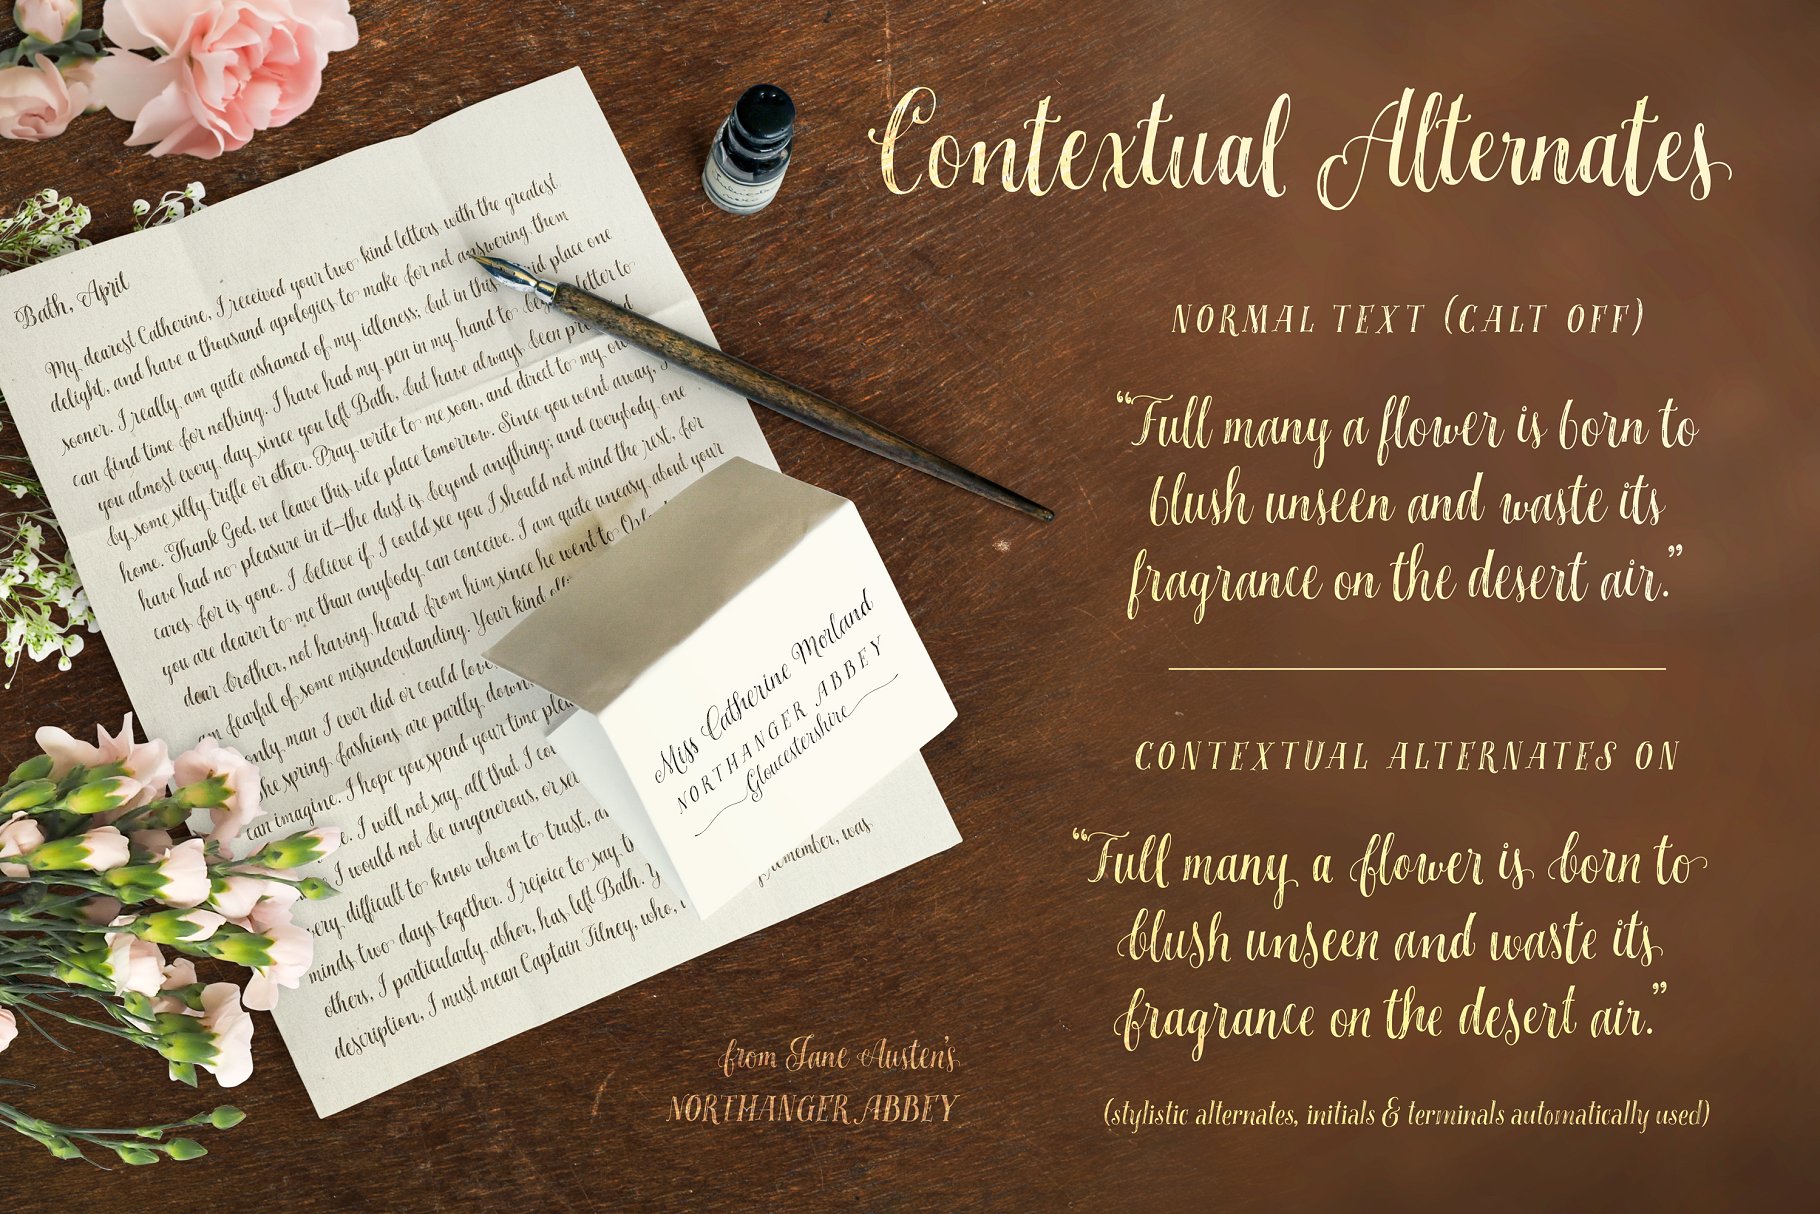 Bath, April
My dearest Catherine, I received your two kind letters with the greatest
delight, and have a thousand apologies to make for not answering them
sooner. I really am quite ashamed of my idleness; but in this place one
can find time for nothing. I have had my pen in my hand to letter to
you almost every day since you left Bath, but have always been
by some silly trifle or other. Pray write to me soon, and direct to my
home. Thank God, we leave this vile place tomorrow. Since you went away, I
have had no pleasure in it—the dust is beyond anything; and everybody one
cares for is gone. I believe if I could see you I should not mind the rest, for
you are dearer to me than anybody can conceive. I am quite uneasy about your
dear brother, not having heard from him since he went to
fearful of some misunderstanding. Your kind
only man I ever did or could love,
the spring fashions are partly down;
can imagine. I hope you spend your time
I will not say all that I
I would not be ungenerous, or
very difficult to know whom to trust,
minds two days together. I rejoice to say
others, I particularly abhor, has left Bath.
description, I must mean Captain Tilney, who, remember, was
Miss Catherine Morland
NORTHANGER ABBEY
Gloucestershire
from Jane Austen's
NORTHANGER ABBEY
Contextual Alternates
NORMAL TEXT (CALT OFF)
“Full many a flower is born to
blush unseen and waste its
fragrance on the desert air.”
CONTEXTUAL ALTERNATES ON
“Full many a flower is born to
blush unseen and waste its
fragrance on the desert air.”
(stylistic alternates, initials & terminals automatically used)